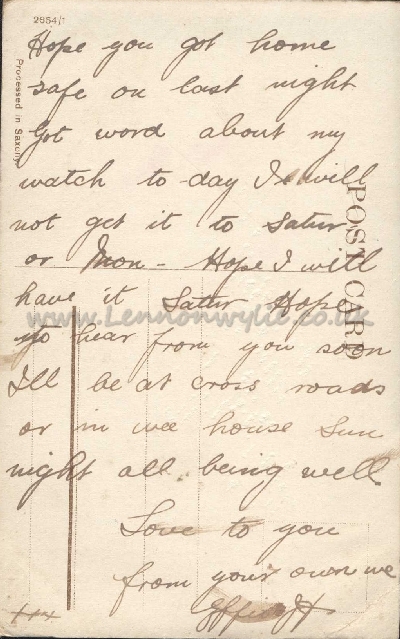 2654/1
Hope you got home
safe on last night
Got word about my
watch to-day I will
not get it to Satur
or Mon - Hope I will
have it Satur Hope
to hear from you soon
I'll be at cross roads
or in wee house Sun
night all being well
Love to you
from your own we
Effie
+++
Processed in Saxony
POST CARD
www.Lennonwylie.co.uk